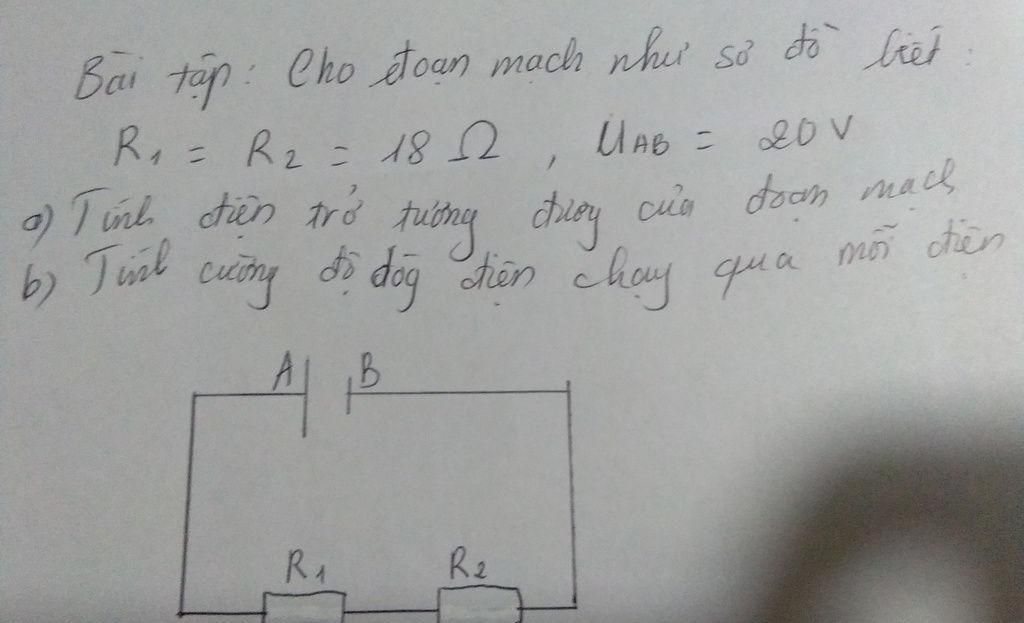 Bài tập: Cho đoạn mạch như sơ đồ biết:
R1 = R2 = 18 Ω, UAB = 20 V
a) Tính điện trở tương đương của đoạn mạch
b) Tính cường độ dòg điện chạy qua mỗi điện
A B
R1 R2